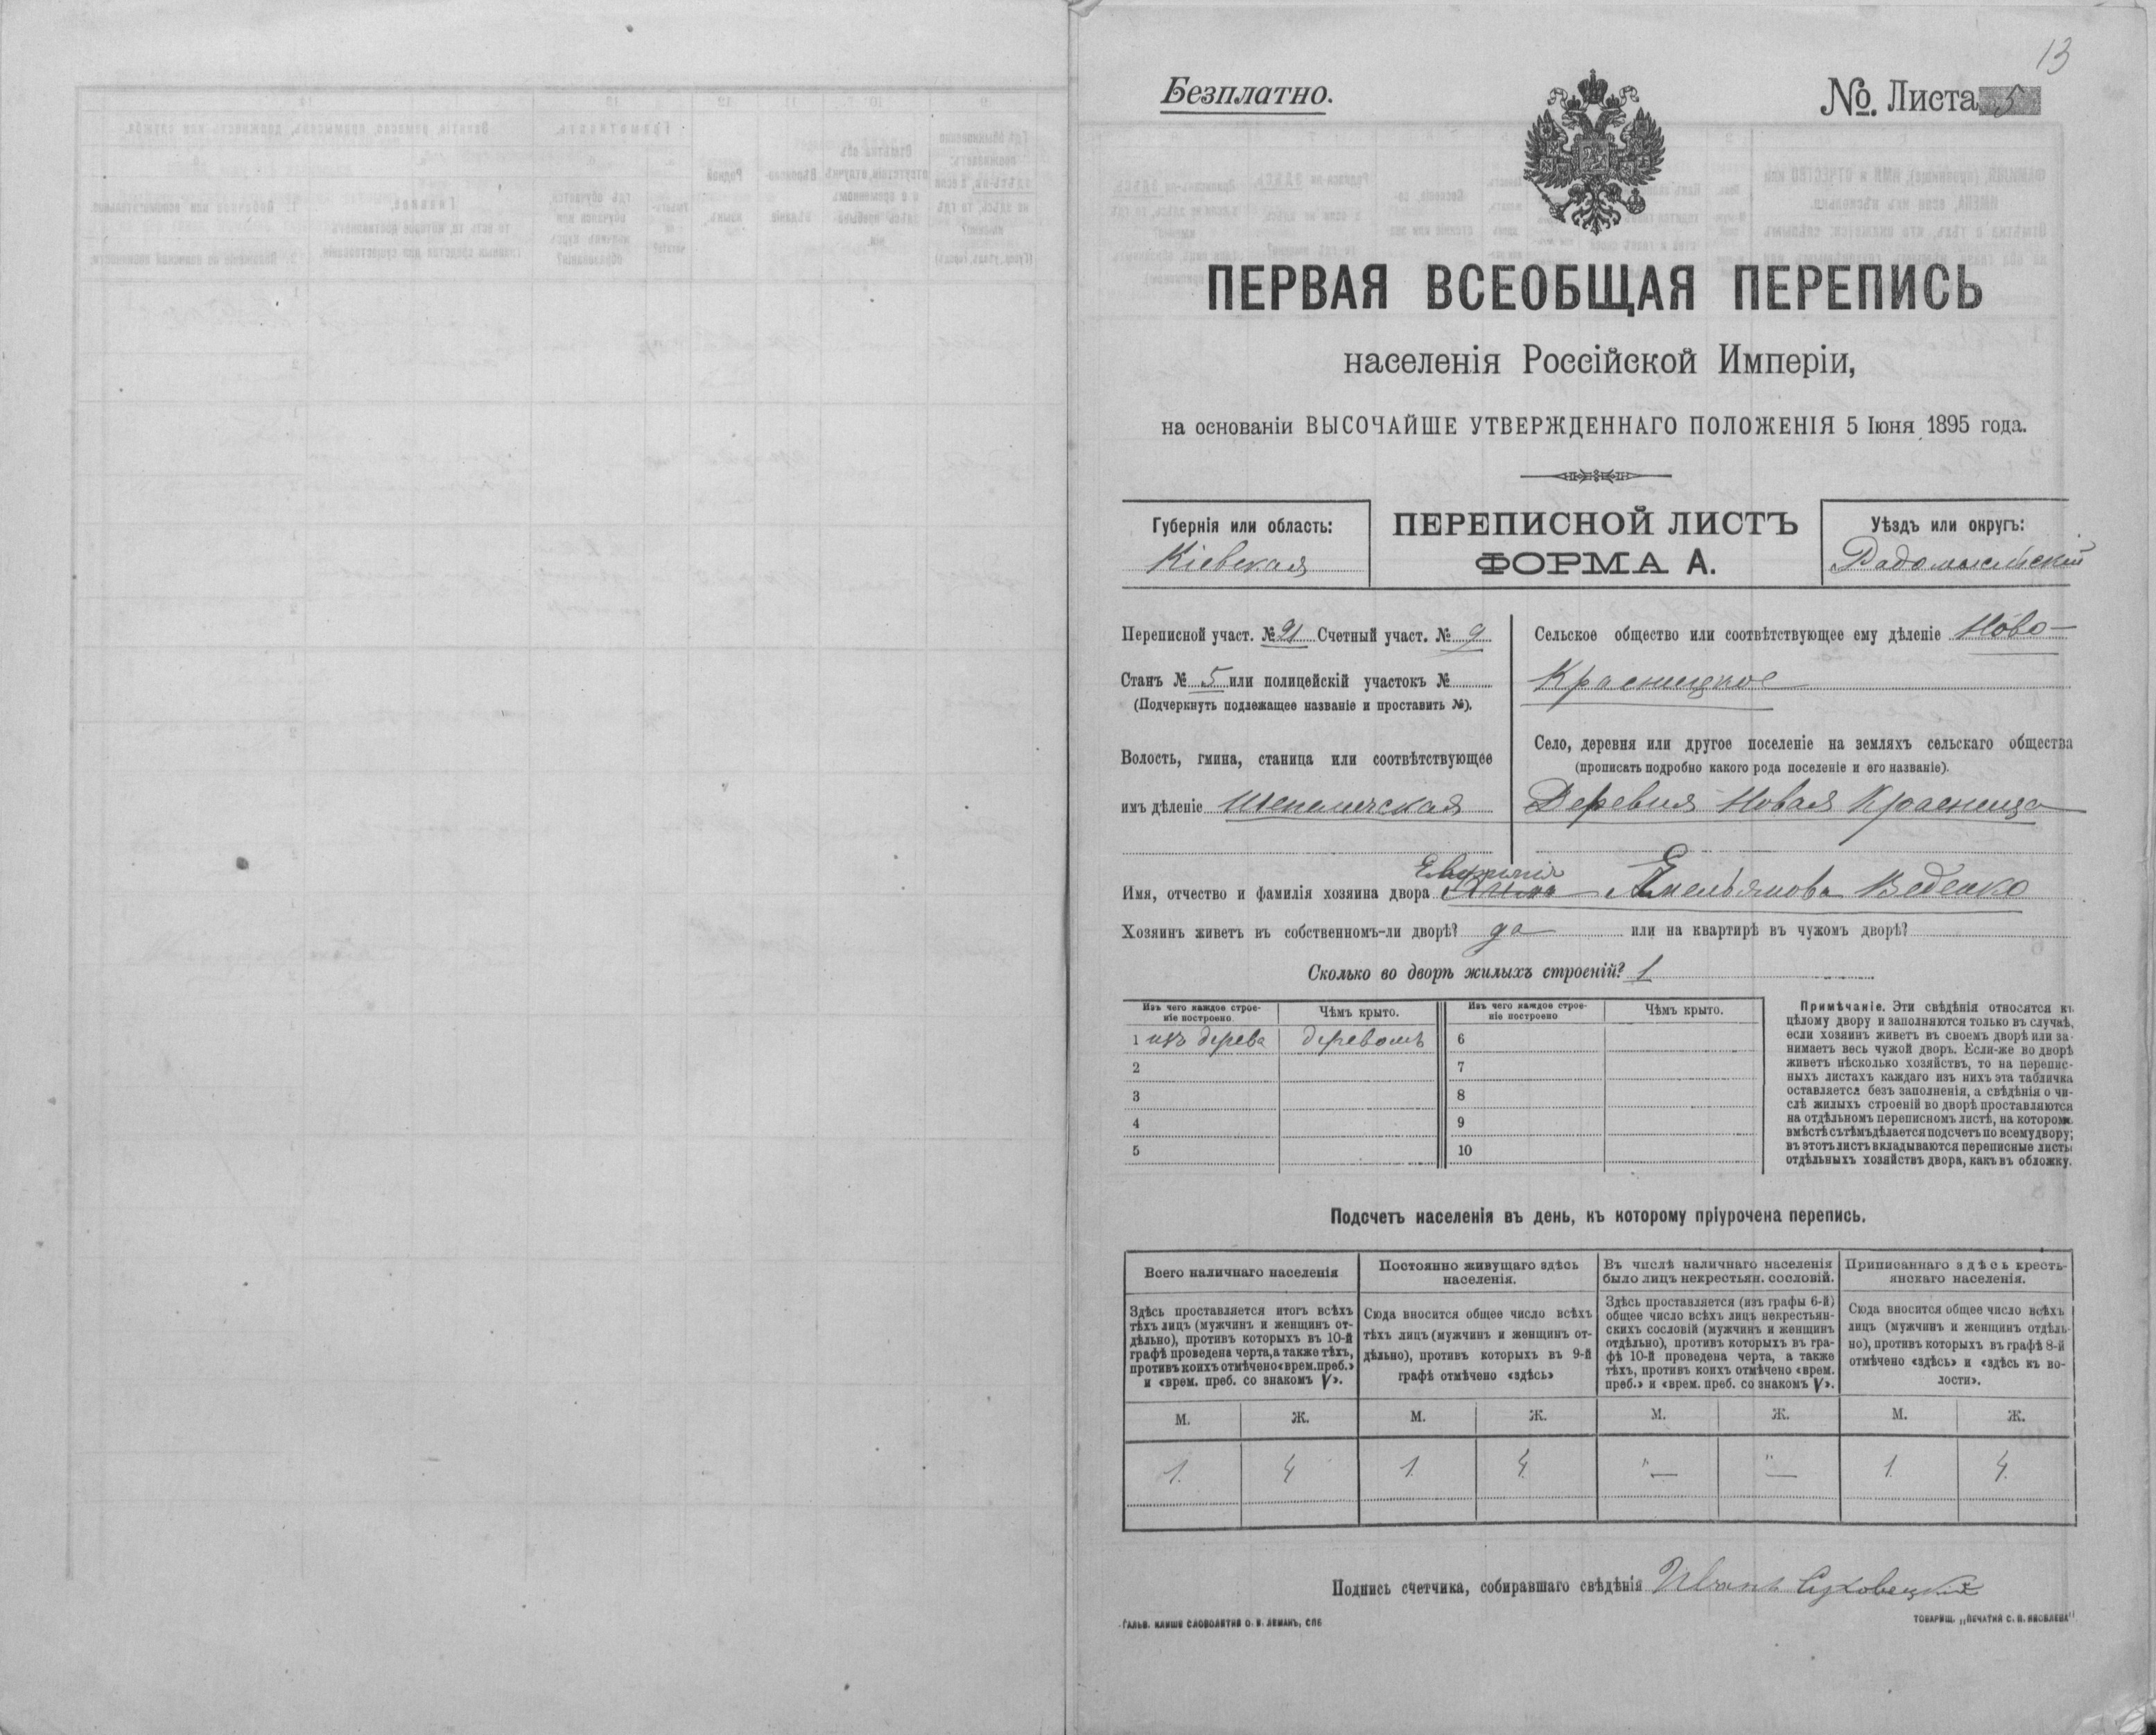 13
Безплатно.
№. Листа 5
ПЕРВАЯ ВСЕОБЩАЯ ПЕРЕПИСЬ
населенія Россійской Имперіи,
на основаніи ВЫСОЧАЙШЕ УТВЕРЖДЕННАГО ПОЛОЖЕНІЯ 5 Іюня 1895 года.
Губернія или область:
Кіевская
ПЕРЕПИСНОЙ ЛИСТЪ
ФОРМА А.
Уѣздъ или округъ:
Радомысльскій
Переписной участ. № 21 Счетный участ. № 9
Станъ № 5 или полицейскій участокъ №
(Подчеркнуть подлежащее названіе и проставить №).
Волость, гмина, станица или соотвѣтствующее
имъ дѣленіе Шепеличская
Сельское общество или соотвѣтствующее ему дѣленіе Ново-
Красницкое
Село, деревня или другое поселеніе на земляхъ сельскаго общества
(прописать подробно какого рода поселеніе и его названіе).
Деревня Новая Красница
Имя, отчество и фамилія хозяина двора Емельянова Веденко
Хозяинъ живетъ въ собственномъ-ли дворѣ? да или на квартирѣ въ чужомъ дворѣ?
Сколько во дворѣ жилыхъ строеній? 1
Изъ чего каждое строе-
ніе построено.
Чѣмъ крыто.
Изъ чего каждое строе-
ніе построено
Чѣмъ крыто.
1 изъ дерева деревомъ 6
2 7
3 8
4 9
5 10
Примѣчаніе. Эти свѣдѣнія относятся къ
цѣлому двору и заполняются только въ случаѣ,
если хозяинъ живетъ въ своемъ дворѣ или за-
нимаетъ весь чужой дворъ. Если-же во дворѣ
живетъ нѣсколько хозяйствъ, то на перепис-
ныхъ листахъ каждаго изъ нихъ эта табличка
оставляется безъ заполненія, а свѣдѣнія о чи-
слѣ жилыхъ строеній во дворѣ проставляются
на отдѣльномъ переписномъ листѣ, на которомъ
вмѣстѣ съ тѣмъ дѣлается подсчетъ по всему двору;
въ этотъ листъ вкладываются переписные листы
отдѣльныхъ хозяйствъ двора, какъ въ обложку.
Подсчетъ населенія въ день, къ которому пріурочена перепись.
Всего наличнаго населенія
Здѣсь проставляется итогъ всѣхъ
тѣхъ лицъ (мужчинъ и женщинъ от-
дѣльно), противъ которыхъ въ 10-й
графѣ проведена черта, а также тѣхъ,
противъ коихъ отмѣчено «врем. преб.»
и «врем. преб. со знакомъ V».
Постоянно живущаго здѣсь
населенія.
Сюда вносится общее число всѣхъ
тѣхъ лицъ (мужчинъ и женщинъ от-
дѣльно), противъ которыхъ въ 9-й
графѣ отмѣчено «здѣсь»
Въ числѣ наличнаго населенія
было лицъ некрестьян. сословій.
Здѣсь проставляется (изъ графы 6-й)
общее число всѣхъ лицъ некрестьян-
скихъ сословій (мужчинъ и женщинъ
отдѣльно), противъ которыхъ въ гра-
фѣ 10-й проведена черта, а также
тѣхъ, противъ коихъ отмѣчено «врем.
преб.» и «врем. преб. со знакомъ V».
Приписаннаго здѣсь кресть-
янскаго населенія.
Сюда вносится общее число всѣхъ
лицъ (мужчинъ и женщинъ отдѣль-
но), противъ которыхъ въ графѣ 8-й
отмѣчено «здѣсь» и «здѣсь къ во-
лости».
М. Ж. М. Ж. М. Ж. М. Ж.
1. 4 1. 4. "— "— 1. 4.
Подпись счетчика, собиравшаго свѣдѣнія Иванъ Суховецкій
ГАЛЬВ. КЛИШЕ СЛОВОЛИТНИ О. И. ЛЕМАНЪ, СПБ
ТОВАРИЩ. „ПЕЧАТНЯ С. П. ЯКОВЛЕВА"